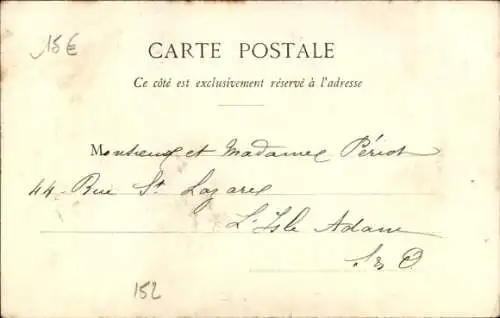 15€
CARTE POSTALE
Ce côté est exclusivement réservé à l'adresse
Monsieur et Madame Périot
44 - Rue St Lazare
L'Isle Adam
S & O
152